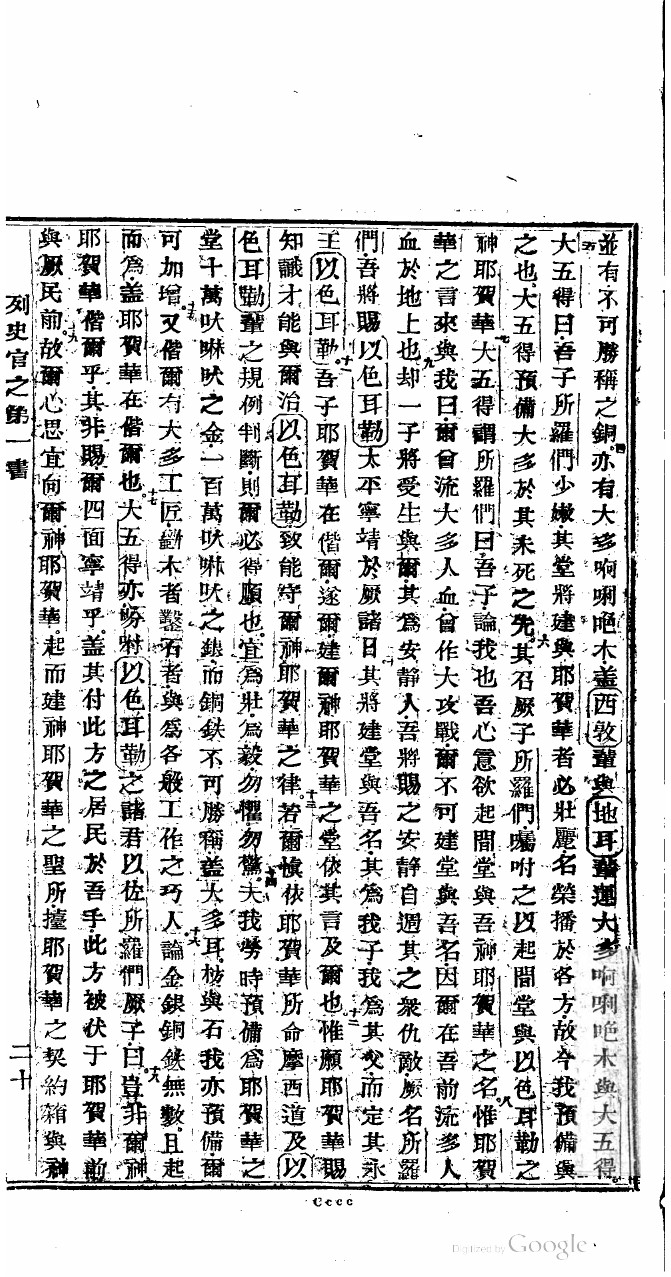 並有不可勝稱之銅亦有大多㖿唎吧木蓋西敦輩與地耳輩運大多㖿唎吧木與大五得
五大五得曰吾子所羅們少嫩其堂將建與耶賀華者必壯麗名榮播於各方故今我預備與
之也大五得預備大多於其未死之先六其召厥子所羅們囑咐之以起間堂與以色耳勒之
神耶賀華七大五得謂所羅們曰吾子論我也吾心意欲起間堂與吾神耶賀華之名八惟耶賀
華之言來與我曰爾曾流大多人血曾作大攻戰爾不可建堂與吾名因爾在吾前流多人
血於地上也九却一子將受生與爾其為安靜人吾將賜之安靜自週其之衆仇敵厥名所羅
們吾將賜以色耳勒太平寧靖於厥諸日十其將建堂與吾名其為我子我為其父而定其永
王以色耳勒十一吾子耶賀華在偕爾遂爾建爾神耶賀華之堂依其言及爾也十二惟願耶賀華賜
知識才能與爾治以色耳勒致能守爾神耶賀華之律十三若爾慎依耶賀華所命摩西道及以
色耳勒輩之規例判斷則爾必得順也宜為壯為毅勿懼勿驚十四夫我勞時預備為耶賀華之
堂十萬吠啉吠之金一百萬吠啉吠之銀而銅鉄不可勝稱蓋大多耳枋與石我亦預備爾
可加增十五又偕爾有大多工匠斲木者鑿石者與為各般工作之巧人十六論金銀銅鉄無數且起
而為蓋耶賀華在偕爾也十七大五得亦吩咐以色耳勒之諸君以佐所羅們厥子曰十八豈非爾神
耶賀華偕爾乎其非賜爾四面寧靖乎蓋其付此方之居民於吾手此方被伏于耶賀華前
與厥民前十九故爾心思宜向爾神耶賀華起而建神耶賀華之聖所擡耶賀華之契約箱與神
列史官之第一書
二十
cccc
Digitized by Google